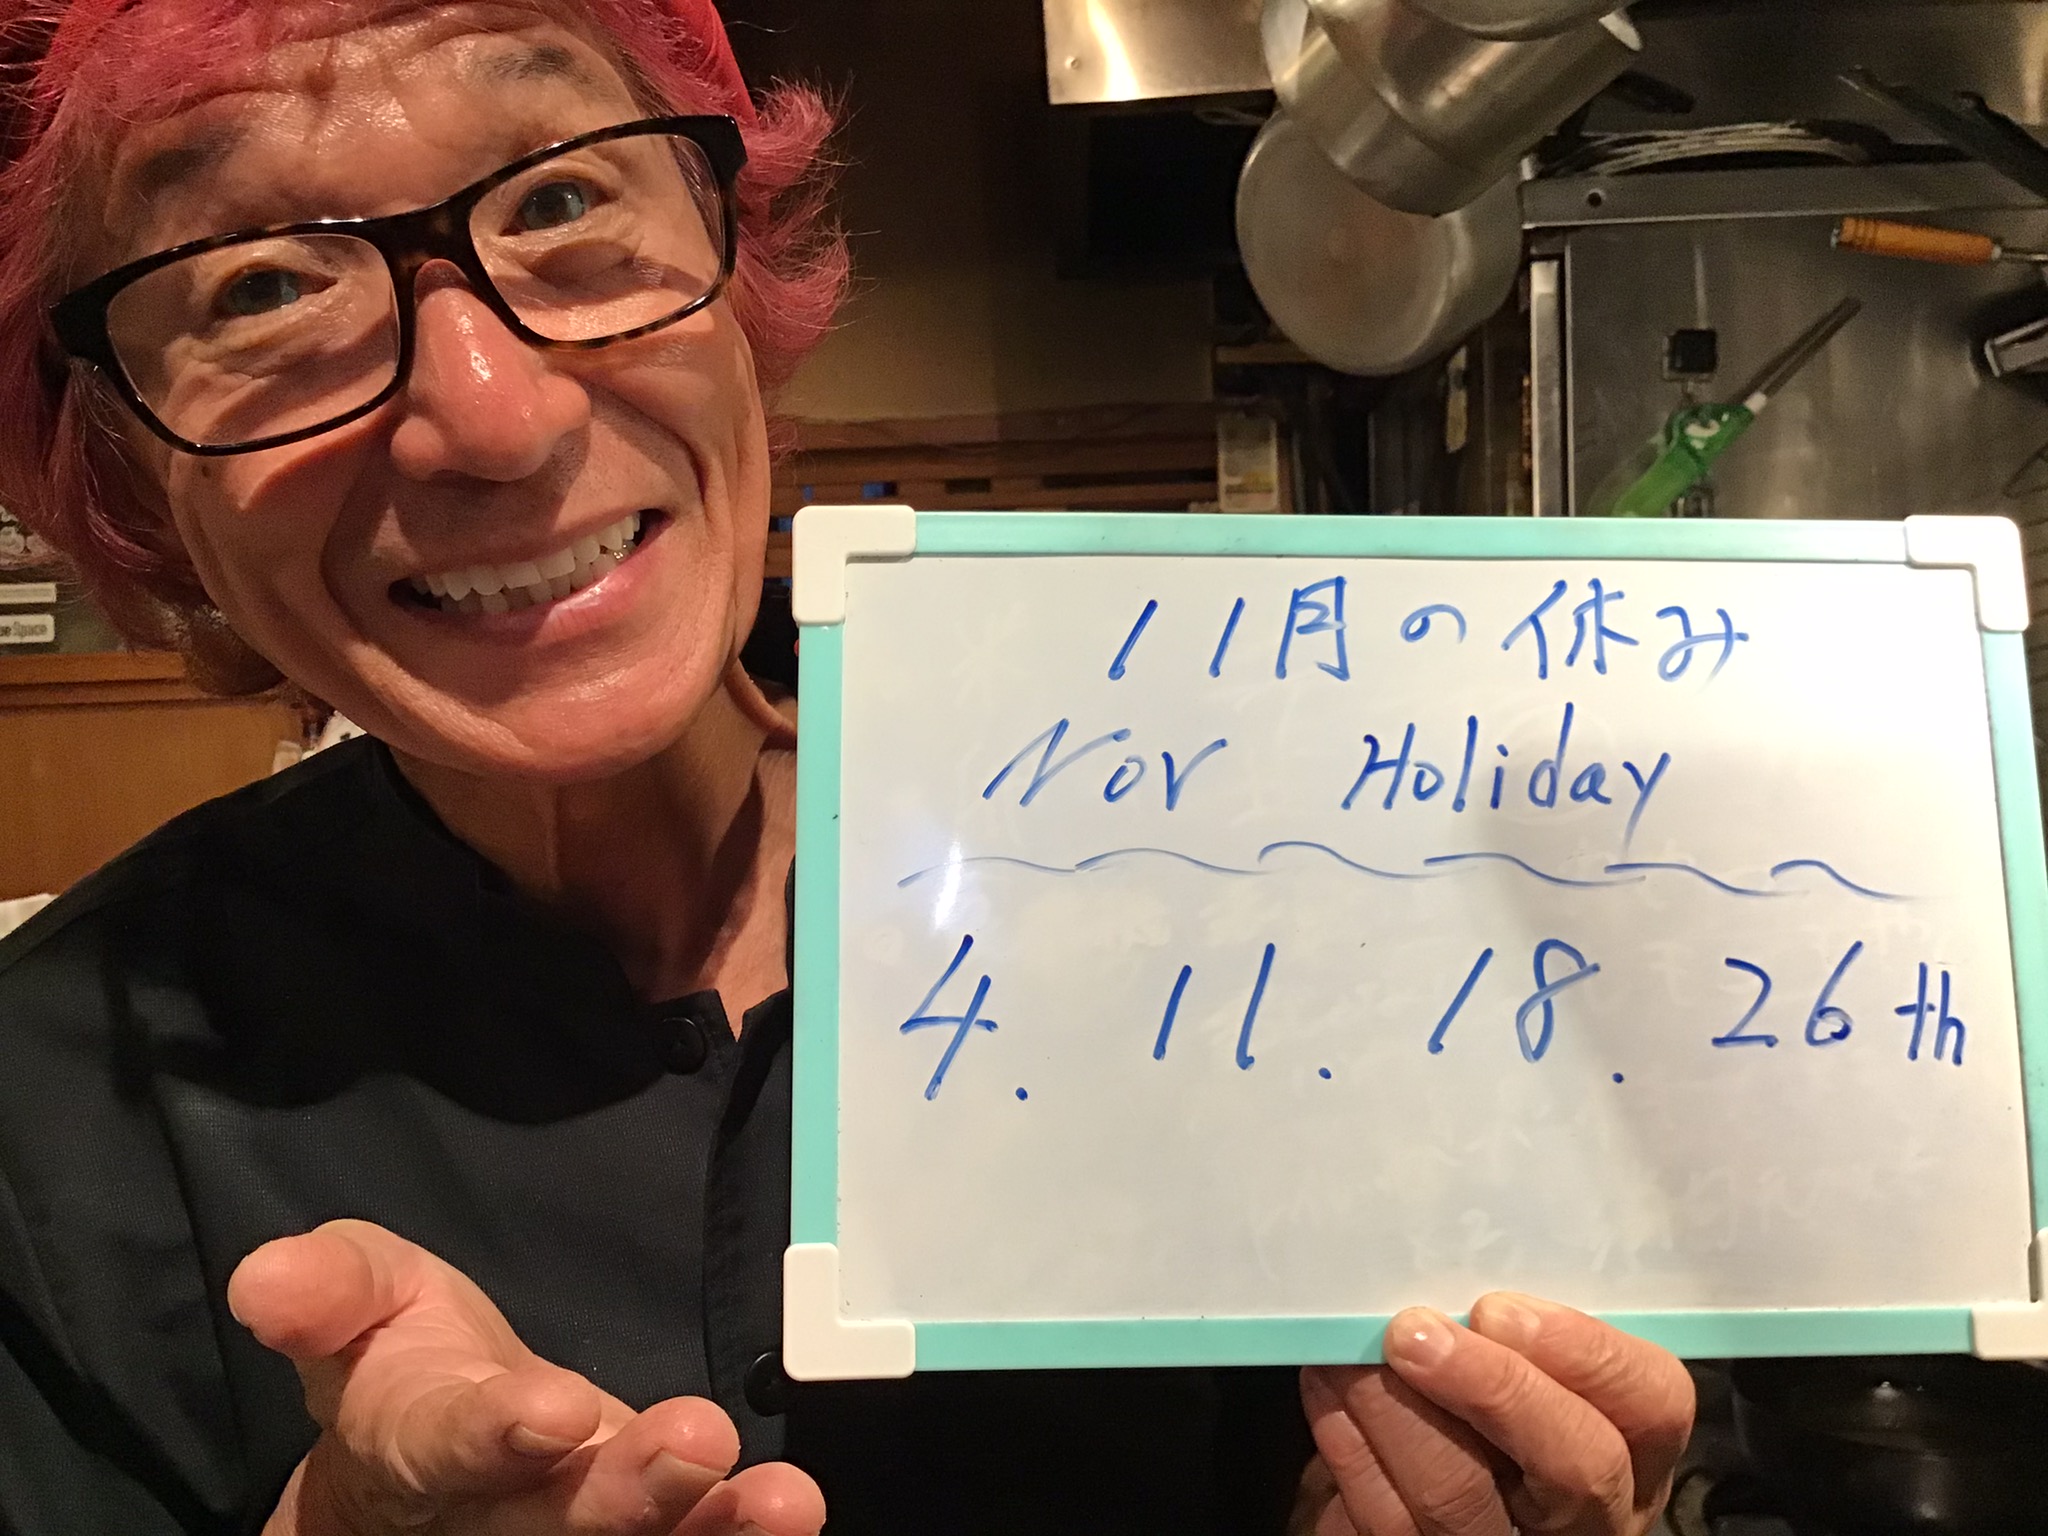 11月の休み
Nov Holiday
4. 11. 18. 26th
Space